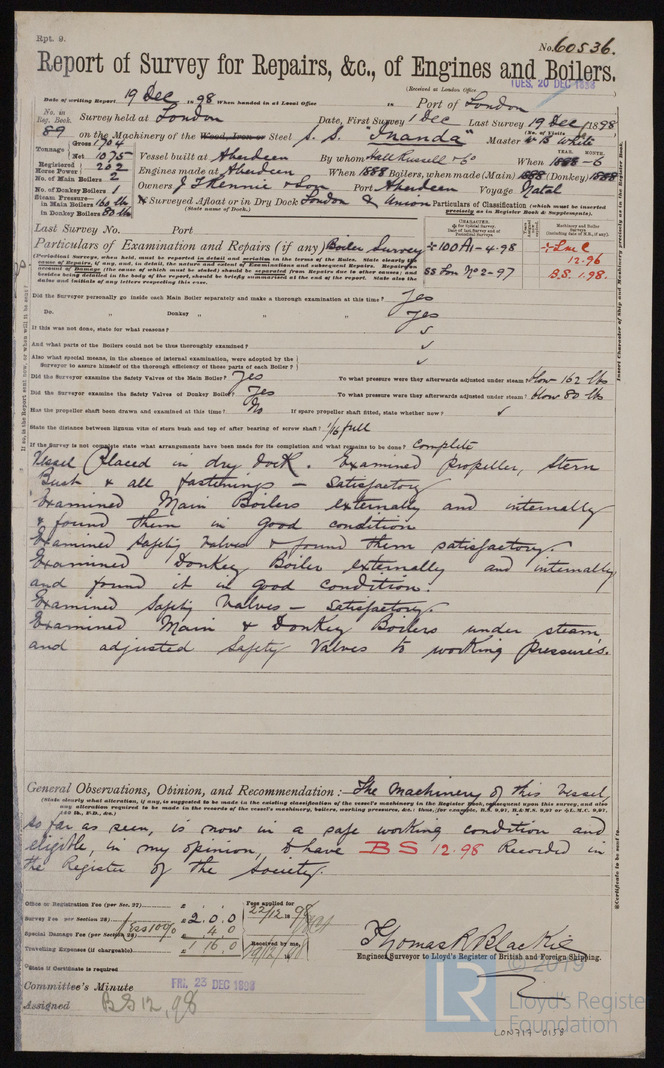 Rpt. 9.
No. 60536.
Report of Survey for Repairs, &c., of Engines and Boilers.
(Received at London Office
TUES. 20 DEC 1898
Date of writing Report 19 Dec 1898 When handed in at Local Office 18 Port of London
No. in Reg. Book. Survey held at London Date, First Survey 1 Dec Last Survey 19 Dec 1898
(No. of Visits
89 on the Machinery of the Wood, Iron or Steel S. S. "Inanda" Master B White
Tonnage Gross 1704
Net 1075
Vessel built at Aberdeen By whom Hall Russell & Co When 1888-6
YEAR. MONTH.
Registered Horse Power 202
Engines made at Aberdeen When 1888 Boilers, when made (Main) 1888 (Donkey) 1888
No. of Main Boilers 2
No. of Donkey Boilers 1
Owners J T Rennie & Son Port Aberdeen Voyage Natal
Steam Pressure—
in Main Boilers 160 lbs
in Donkey Boilers 80 lbs
If Surveyed Afloat or in Dry Dock London & Union
(State name of Dock.)
Particulars of Classification (which must be inserted precisely as in Register Book & Supplements).
Last Survey No. Port
Particulars of Examination and Repairs (if any) Boiler Survey
(Periodical Surveys, when held, must be reported in detail and seriatim in the terms of the Rules. State clearly the
cause of Repairs, if any, and, in detail, the nature and extent of Examinations and subsequent Repairs. Repairs on
account of Damage (the cause of which must be stated) should be separated from Repairs due to other causes; and
besides being detailed in the body of the report, should be briefly summarised at the end of the report. State also the
dates and initials of any letters respecting this case.
CHARACTER.
Machinery and Boiler Surveys
(including date of N.B., if any).
100A1-4.98
SS Lon No 2-97
LMC
12.96
B.S. 1.98.
Did the Surveyor personally go inside each Main Boiler separately and make a thorough examination at this time? Yes
Do. " Donkey " " " Yes
If this was not done, state for what reasons?
And what parts of the Boilers could not be thus thoroughly examined?
Also what special means, in the absence of internal examination, were adopted by the
Surveyor to assure himself of the thorough efficiency of those parts of each Boiler?
Did the Surveyor examine the Safety Valves of the Main Boiler? Yes To what pressure were they afterwards adjusted under steam? blow 162 lbs
Did the Surveyor examine the Safety Valves of Donkey Boiler? Yes To what pressure were they afterwards adjusted under steam? blow 80 lbs
Has the propeller shaft been drawn and examined at this time? No If spare propeller shaft fitted, state whether new?
State the distance between lignum vitæ of stern bush and top of after bearing of screw shaft? 1/16 full
If the Survey is not complete state what arrangements have been made for its completion and what remains to be done? Complete
Vessel placed in dry dock. Examined Propeller, Stern
Bush & all fastenings — Satisfactory
Examined Main Boilers externally and internally
& found them in good condition
Examined Safety Valves & found them satisfactory.
Examined Donkey Boiler externally and internally
and found it in good condition.
Examined Safety Valves — Satisfactory.
Examined Main & Donkey Boilers under steam
and adjusted Safety Valves to working pressures.
General Observations, Opinion, and Recommendation:— The Machinery of this Vessel,
(State clearly what alteration, if any, is suggested to be made in the existing classification of the vessel's machinery in the Register Book, consequent upon this survey, and also
any alteration required to be made in the records of the vessel's machinery, boilers, working pressures, &c.: thus,
so far as seen, is now in a safe working condition and
eligible, in my opinion, to have BS 12.98 Recorded in
the Register of the Society.
Office or Registration Fee (per Sec. 27)
Survey Fee per Section 28) £ 2.0.0
Less 10% 4.0
Special Damage Fee (per Section 28)
£ 1 16.0
Travelling Expenses (if chargeable)
Fees applied for
22/12 1898
Received by me,
Thomas R Blackie
Engineer Surveyor to Lloyd's Register of British and Foreign Shipping.
State if Certificate is required
Committee's Minute FRI. 23 DEC 1898
Assigned BS 12,98
© 2019
LR
Lloyd's Register
Foundation
LON717-0158